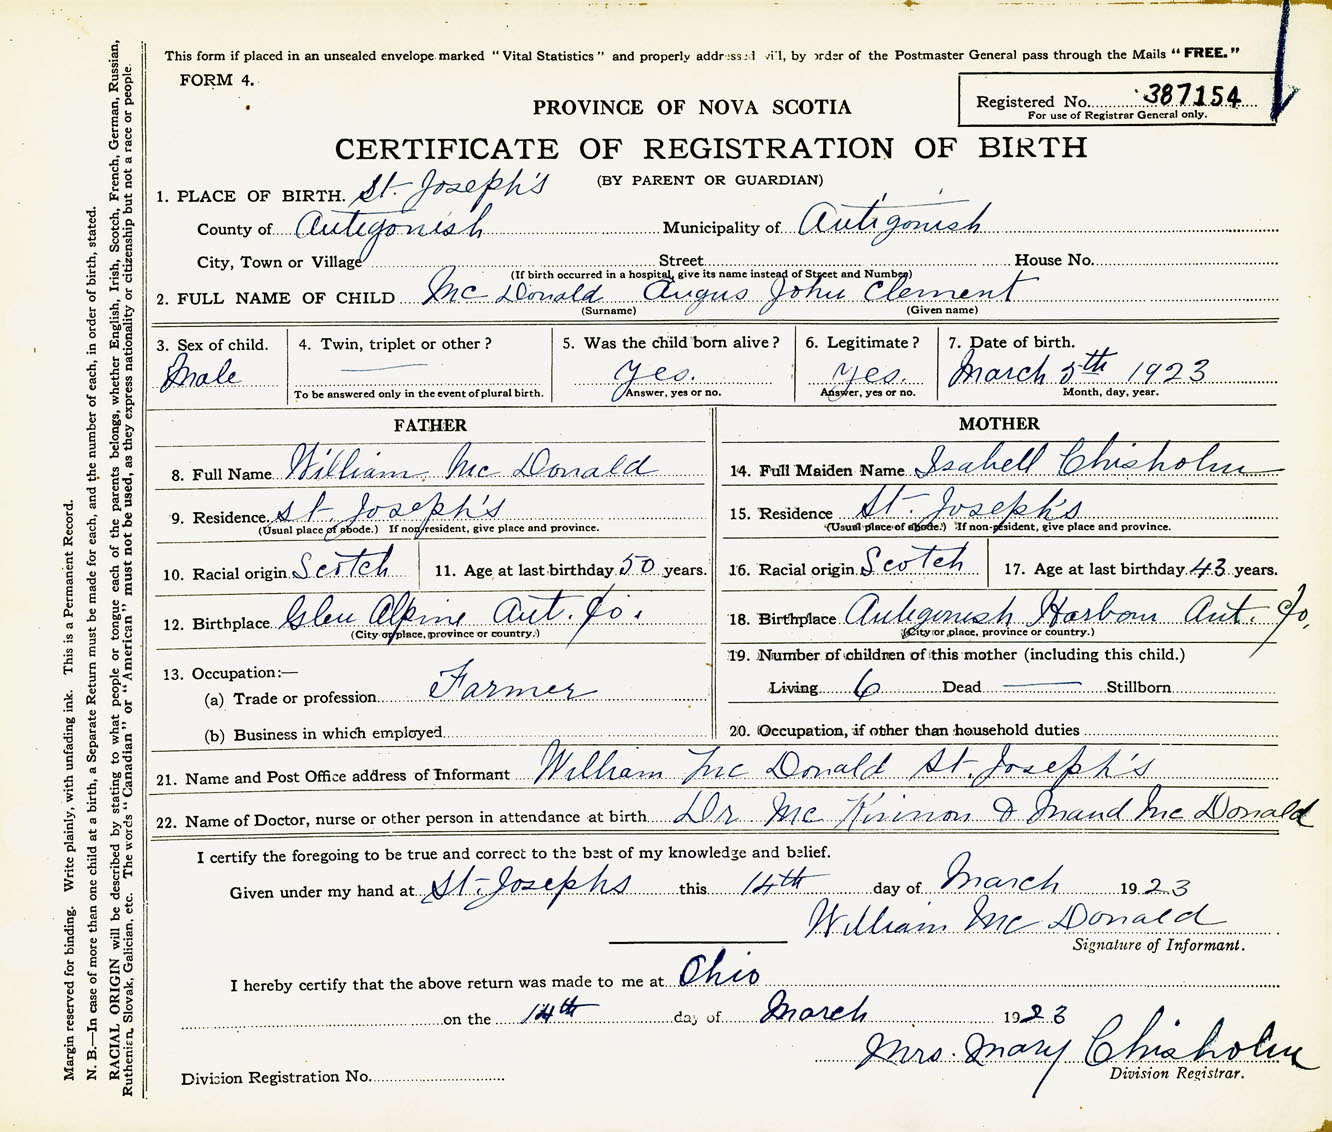 This form if placed in an unsealed envelope marked "Vital Statistics" and properly addressed will, by order of the Postmaster General pass through the Mails "FREE."
FORM 4.
Registered No. 387154
For use of Registrar General only.
PROVINCE OF NOVA SCOTIA
CERTIFICATE OF REGISTRATION OF BIRTH
(BY PARENT OR GUARDIAN)
1. PLACE OF BIRTH. St. Joseph's
County of Antigonish Municipality of Antigonish
City, Town or Village Street House No.
(If birth occurred in a hospital, give its name instead of Street and Number)
2. FULL NAME OF CHILD Mc Donald Angus John Clement
(Surname) (Given name)
3. Sex of child. 4. Twin, triplet or other? 5. Was the child born alive? 6. Legitimate? 7. Date of birth.
Male yes. yes. March 5th 1923
To be answered only in the event of plural birth. Answer, yes or no. Answer, yes or no. Month, day, year.
FATHER MOTHER
8. Full Name William Mc Donald 14. Full Maiden Name Isabell Chisholm
9. Residence St. Joseph's 15. Residence St. Joseph's
(Usual place of abode.) If non-resident, give place and province. (Usual place of abode.) If non-resident, give place and province.
10. Racial origin Scotch 11. Age at last birthday 50 years. 16. Racial origin Scotch 17. Age at last birthday 43 years.
12. Birthplace Glen Alpine Ant. Co. 18. Birthplace Antigonish Harbour Ant. Co.
(City or place, province or country.) (City or place, province or country.)
13. Occupation:— 19. Number of children of this mother (including this child.)
(a) Trade or profession Farmer Living 6 Dead — Stillborn
(b) Business in which employed 20. Occupation, if other than household duties
21. Name and Post Office address of Informant William Mc Donald St. Joseph's
22. Name of Doctor, nurse or other person in attendance at birth Dr Mc Kinnon & Maud Mc Donald
I certify the foregoing to be true and correct to the best of my knowledge and belief.
Given under my hand at St. Josephs this 14th day of March 1923
William Mc Donald
Signature of Informant.
I hereby certify that the above return was made to me at Ohio
on the 14th day of March 1923
Mrs. Mary Chisholm
Division Registrar.
Division Registration No.
Margin reserved for binding. Write plainly, with unfading ink. This is a Permanent Record.
N. B.—In case of more than one child at a birth, a Separate Return must be made for each, and the number of each, in order of birth, stated.
RACIAL ORIGIN will be described by stating to what people or tongue each of the parents belongs, whether English, Irish, Scotch, French, German, Russian,
Ruthenian, Slovak, Galician, etc. The words "Canadian" or "American" must not be used, as they express nationality or citizenship but not a race or people.